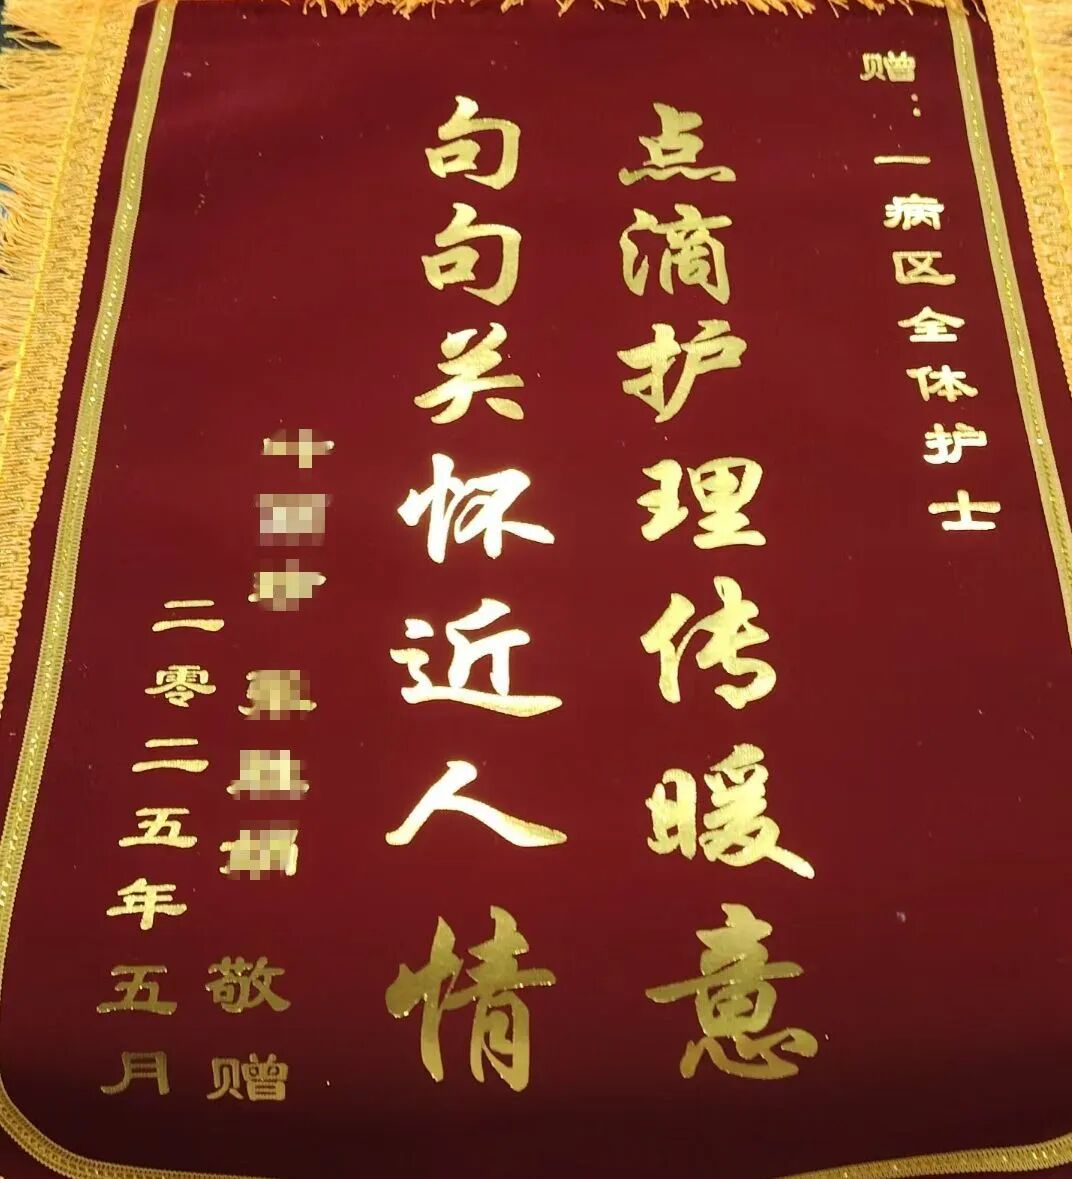 赠：一病区全体护士
点滴护理传暖意
句句关怀近人情
敬赠
二零二五年五月